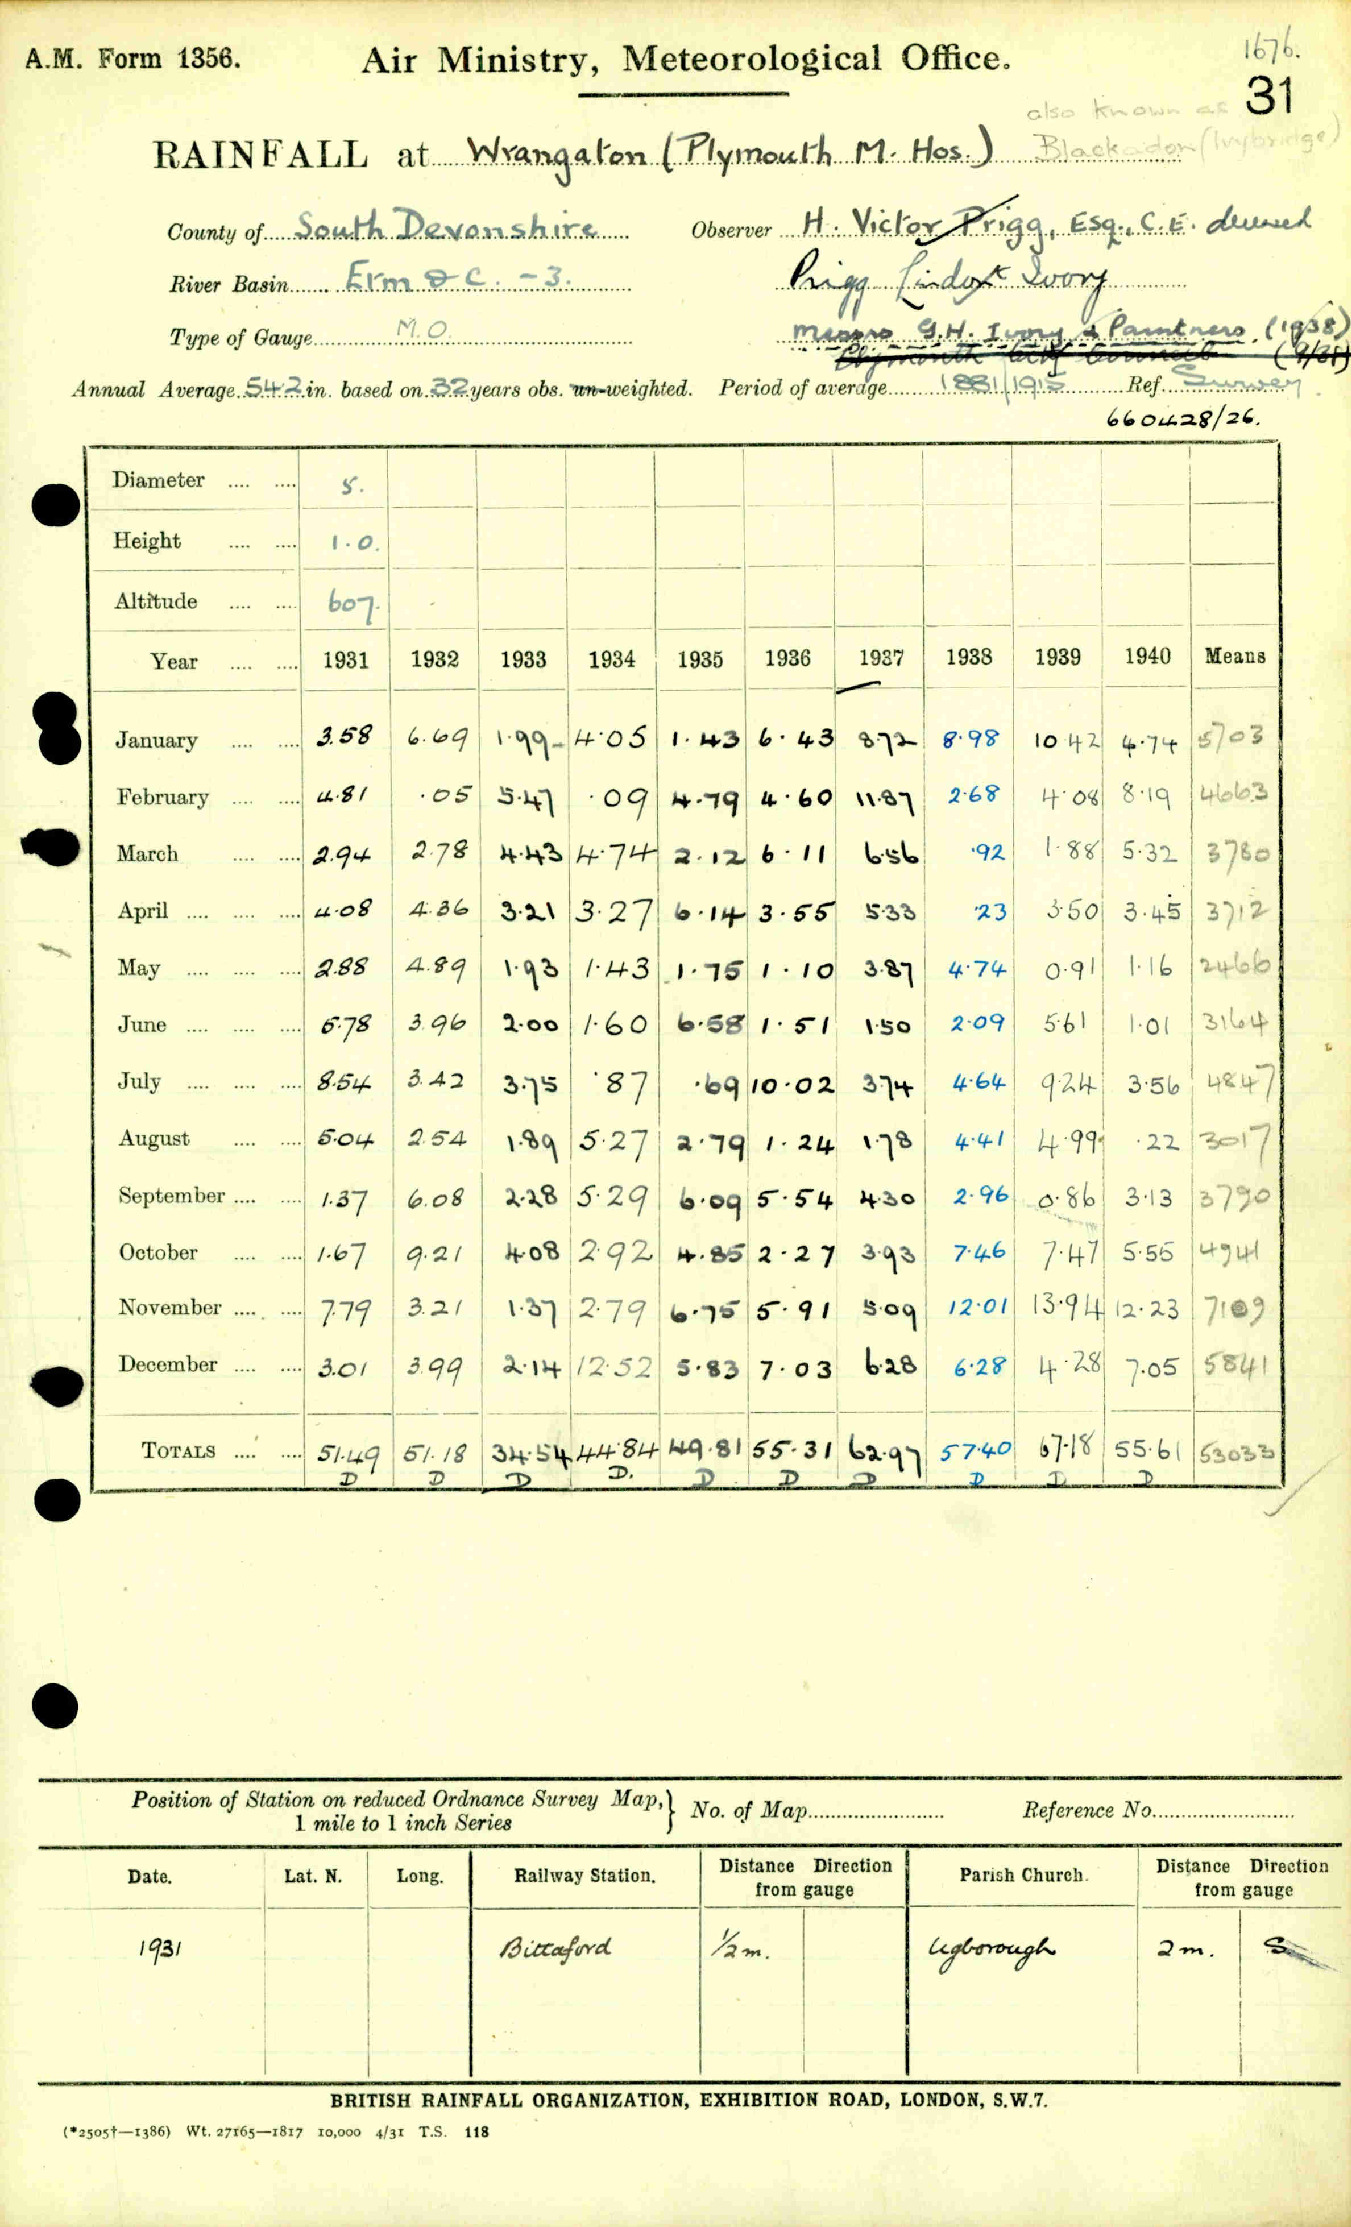 1676.
A.M. Form 1356. Air Ministry, Meteorological Office. 31
also known as
RAINFALL at Wrangaton (Plymouth M. Hos.) Blackadon (Ivybridge)
County of South Devonshire Observer H. Victor Prigg, Esq., C.E. deceased
River Basin Erm & C. - 3. Prigg Ivory
Type of Gauge M.O. Messrs G.H. Ivory & Partners (1938)
Plymouth City Council (9/31)
Annual Average 54.2 in. based on 32 years obs. un-weighted. Period of average 1881/1915 Ref. Survey
660428/26.
Diameter 5.
Height 1.0.
Altitude 607.
Year 1931 1932 1933 1934 1935 1936 1937 1938 1939 1940 Means
January 3.58 6.69 1.99 4.05 1.43 6.43 8.72 8.98 10 42 4.74 5703
February 4.81 .05 5.47 .09 4.79 4.60 11.87 2.68 4.08 8.19 4663
March 2.94 2.78 4.43 4.74 2.12 6.11 6.56 .92 1.88 5.32 3780
April 4.08 4.36 3.21 3.27 6.14 3.55 5.33 .23 3.50 3.45 3712
May 2.88 4.89 1.93 1.43 1.75 1.10 3.87 4.74 0.91 1.16 2466
June 5.78 3.96 2.00 1.60 6.58 1.51 1.50 2.09 5.61 1.01 3164
July 8.54 3.42 3.75 .87 .69 10.02 3.74 4.64 9.24 3.56 4847
August 5.04 2.54 1.89 5.27 2.79 1.24 1.78 4.41 4.99 .22 3017
September 1.37 6.08 2.28 5.29 6.09 5.54 4.30 2.96 0.86 3.13 3790
October 1.67 9.21 4.08 2.92 4.85 2.27 3.93 7.46 7.47 5.55 4941
November 7.79 3.21 1.37 2.79 6.75 5.91 5.09 12.01 13.94 12.23 7109
December 3.01 3.99 2.14 12.52 5.83 7.03 6.28 6.28 4.28 7.05 5841
TOTALS 51.49 51.18 34.54 44.84 49.81 55.31 62.97 57.40 67.18 55.61 53033
D D D D. D D D D D D
Position of Station on reduced Ordnance Survey Map, } No. of Map Reference No.
1 mile to 1 inch Series
Date. Lat. N. Long. Railway Station. Distance Direction from gauge Parish Church. Distance Direction from gauge
1931 Bittaford 1/2 m. Ugborough 2 m. S
BRITISH RAINFALL ORGANIZATION, EXHIBITION ROAD, LONDON, S.W.7.
(*2505†—1386) Wt. 27165—1817 10,000 4/31 T.S. 118